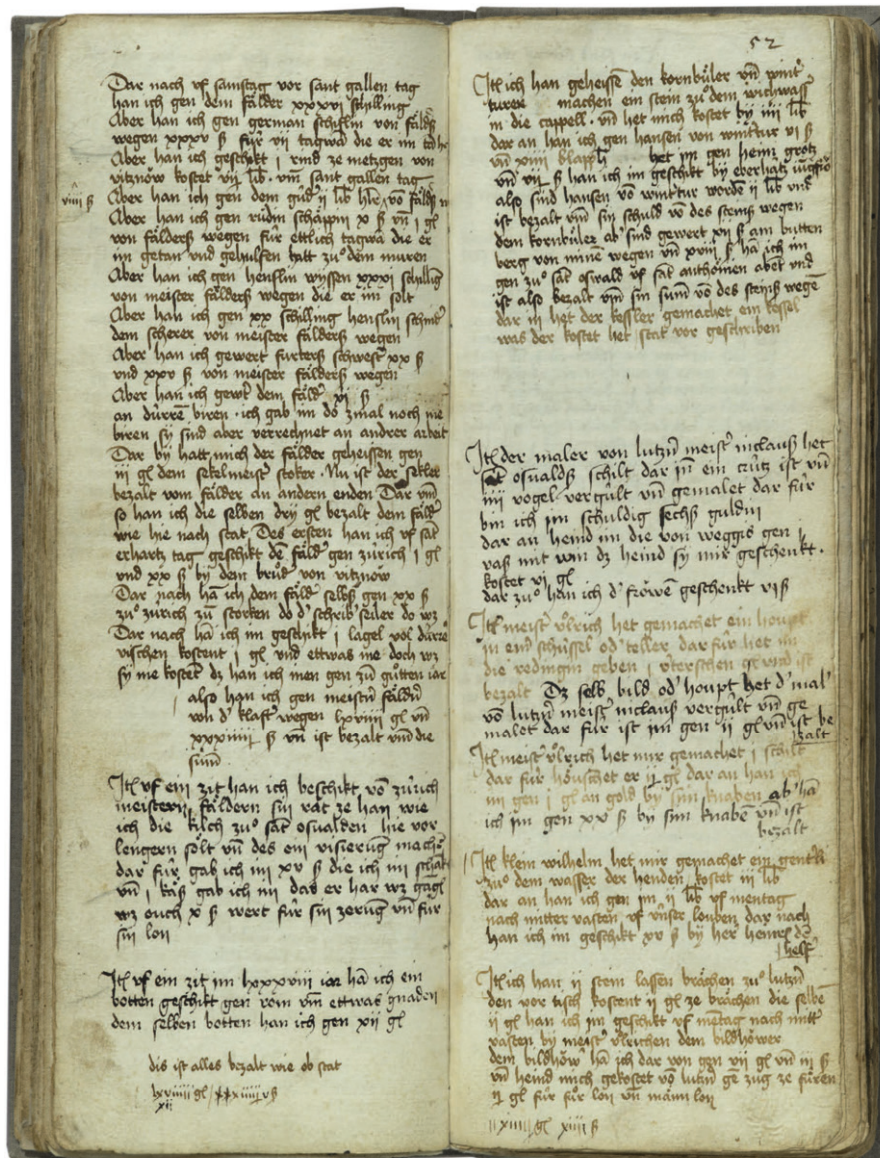 Dar nach uf samstag vor sant gallen tag
han ich gen dem fälder xxxvi schilling
Aber han ich gen german schiflin von fälders
wegen xxxv ß für vii tagwa die er im
Aber han ich geschikt i rind ze metzgen von
vitznöw kostet vij lib. um sant gallen tag
viiii ß
Aber han ich gen dem ii lib hlr vö
Aber han ich gen rüdin schäppin x ß uñ i gl
von fälderß wegen für ettlich tagwa die er
im getan und gehulfen hatt zuo dem muren
Aber han ich gen henslin wyssen xxxi schilling
von meister fälderß wegen die er im solt
Aber han ich gen xx schilling henslin
dem scherer von meister fälderß wegen
Aber han ich gewert furterß schwest xx ß
und xxv ß von meister fälderß wegen
Aber han ich gewt dem fäld xi ß
an dürrë biren . ich gab im do zmal noch me
biren sy sind aber verrechnet an andrer arbeit
Dar by hatt mich der fälder geheissen gen
iii gl dem sekelmeist stoker . Nu ist der sekler
bezalt vom fälder an andern enden Dar um
so han ich die selben dry gl bezalt dem fäld
wie hie nach stat Des ersten han ich uf sät
erhartz tag geschikt dë fäld gen zürich i gl
und xx ß by dem bruod von vitznöw
Dar nach hä ich dem fäld selbß gen xx ß
zuo zürich zü storken do d schrib seiler do wz
Dar nach hä ich im geschikt i lagel vol dürre
vischen kostent i gl und ettwas me doch wz
sy me kostet dz han ich inen gen zü guotten iar
also han ich gen meistn fäldn
von d klaft wegen lxviiii gl uñ
xxxiiii ß uñ ist bezalt um die
sum
Itë uf ein zit han ich beschikt vö zürich
meistern fäldern sin rat ze han wie
ich die kilch zuo sät osualden hie vor
lengern sölt uñ des ein visierug
dar für gab ich im xv ß die ich im
uñ i käß gab ich im das er har wz
wz ouch x ß wert für sin zerug uñ für
sin lon
Itë uf ein zit im lxxxviii iar hä ich ein
botten geschikt gen rom um ettwas gnaden
dem selben botten han ich gen xii gl
dis ist alles bezalt wie ob stat
lxviiii gl
xii
52
Itë ich han geheissë den kornbüler uñ
machen ein stein zuo dem wichwass
in die cappell . uñ het mich kostet by iiii lib
dar an han ich gen hansen von wintur vi ß
uñ xiiii blaph het im gen heini grötz
uñ vij ß han ich im geschikt by eberhatz
also sind hansen vö wintur wordë ii lib und
ist bezalt um sin schuld vö des steinß wegen
dem kornbüler ab sind gewert xii ß am butten
berg von minë wegen uñ xviii ß hä ich im
gen zuo sät oswald uf sät anthönien abët und
ist also bezalt um sin sum vö des steinß wegë
dar in het der kessler gemachet ein kessel
was der kostet het stat vor geschriben
Itë der maler von lutzn meist niclauß het
sät osualdß schilt dar in ein crütz ist uñ
iiii vogel vergült uñ gemalet dar für
bin ich im schuldig sechß guldin
dar an heind im die von weggis gen i
vaß mit win dz heind sy mir geschenkt .
kostet vi gl
dar zuo han ich d fröwë geschenkt vi ß
Itë meist uolrich het gemachet ein houpt
in einr schüssel od teller dar für het im
die redingin geben i
bezalt Dz selb bild od houpt het d mal
vö lutzn meist niclauß vergült uñ ge
malet dar für ist im gen ii gl uñ ist be
zalt
Itë meist uolrich het mir gemachet i schilt
dar für höuschet er ij gl dar an han ich
im gen i gl an gold by sim knaben ab hä
ich im gen xv ß by sim knabë uñ ist
bezalt
Itë klein wilhelm het mir gemachet ein
zuo dem wasser der henden kostet iii lib
dar an han ich gen im ii lib uf mentag
nach mitter vasten uf unser louben dar nach
han ich im geschikt xv ß by her
helf
Itë ich han ii stein lassen brächen zuo lutzn
den vor tisch kostent ii gl ze brächen die selbe
ii gl han ich im geschikt uf mëtag nach mitt
vasten by meist uolrichen dem bildhöwer
dem bildhöw hä ich dar von gen vii gl uñ iii ß
uñ heind mich gekostet vö lutzn gë zug ze füren
ij gl für fuor lon uñ mann lon
gl xiiii ß